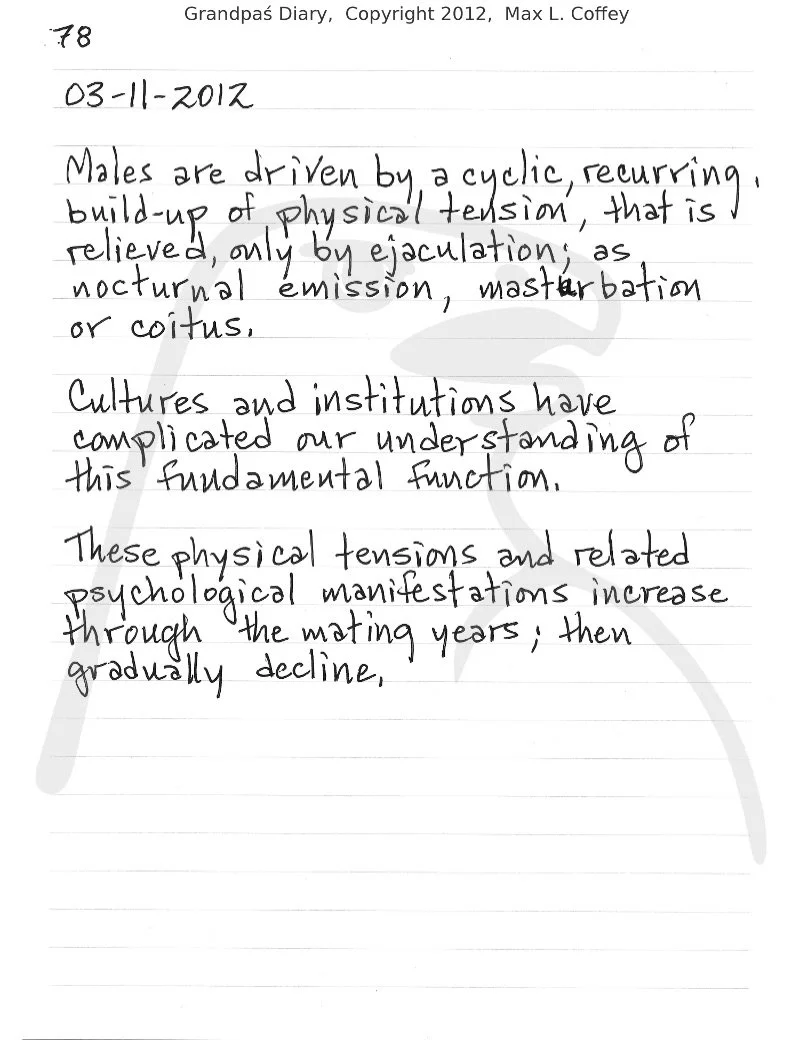 Grandpaś Diary, Copyright 2012, Max L. Coffey
78
03-11-2012
Males are driven by a cyclic, recurring,
build-up of physical tension, that is
relieved, only by ejaculation; as
nocturnal emission, masturbation
or coitus.
Cultures and institutions have
complicated our understanding of
this fundamental function.
These physical tensions and related
psychological manifestations increase
through the mating years; then
gradually decline.